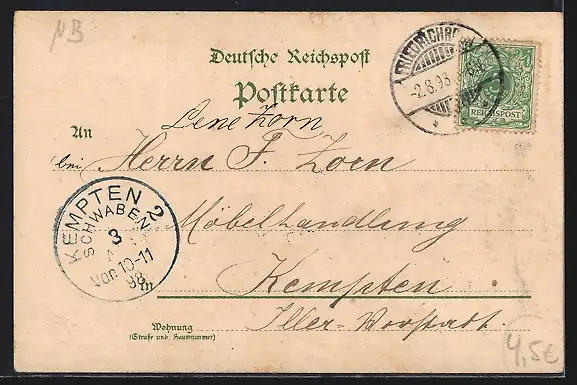 NB
Deutsche Reichspost
Postkarte
FRIEDRICHRODA
-2.8.98
REICHSPOST
Lene Zorn
An
bei Herrn F. Zorn
Möbelhandlung
KEMPTEN 2
SCHWABEN
3
Vor. 10-11
98
in Kempten
Iller-Vorstadt.
Wohnung
(Straße und Hausnummer)
4,5€